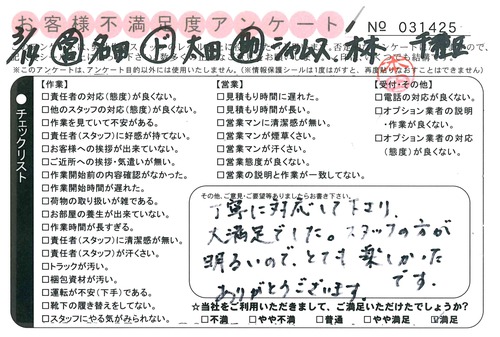 お客様不満足度アンケート
No 031425
3/14 営 名田 ド 太田 助
※このアンケートは、アンケート目的以外には使用いたしません。(※情報保護シールは1度がはすと、再度貼りなおすことはできません)
チェックリスト
【作業】
□責任者の対応(態度)が良くない。
□他のスタッフの対応(態度)が良くない。
□作業を見ていて不安がある。
□責任者(スタッフ)に好感が持てない。
□お客様への挨拶が出来ていない。
□ご近所への挨拶・気遣いが無い。
□作業開始前の内容確認がなかった。
□作業開始時間が遅れた。
□荷物の取り扱いが雑である。
□お部屋の養生が出来ていない。
□作業時間が長すぎる。
□責任者(スタッフ)に清潔感が無い。
□責任者(スタッフ)が汗くさい。
□トラックが汚い。
□梱包資材が汚い。
□運転が不安(下手)である。
□靴下の履き替えをしてない。
□スタッフにやる気がみられない。
【営業】
□見積もり時間に遅れた。
□見積もり時間が長い。
□営業マンに清潔感が無い。
□営業マンが煙草くさい。
□営業マンが汗くさい。
□営業態度が良くない。
□営業の説明と作業が一致してない。
【受付・その他】
□電話の対応が良くない。
□オプション業者の説明
・作業が良くない。
□オプション業者の対応
(態度)が良くない。
その他、ご意見・ご要望等ありましたらお書き下さい。
丁寧に対応して下さり、
大満足でした。スタッフの方が
明るいので、とても楽しかった
です。
ありがとうございます。
☆当社をご利用いただきまして、ご満足いただけたでしょうか?
□不満 □やや不満 □普通 □やや満足 ☑満足